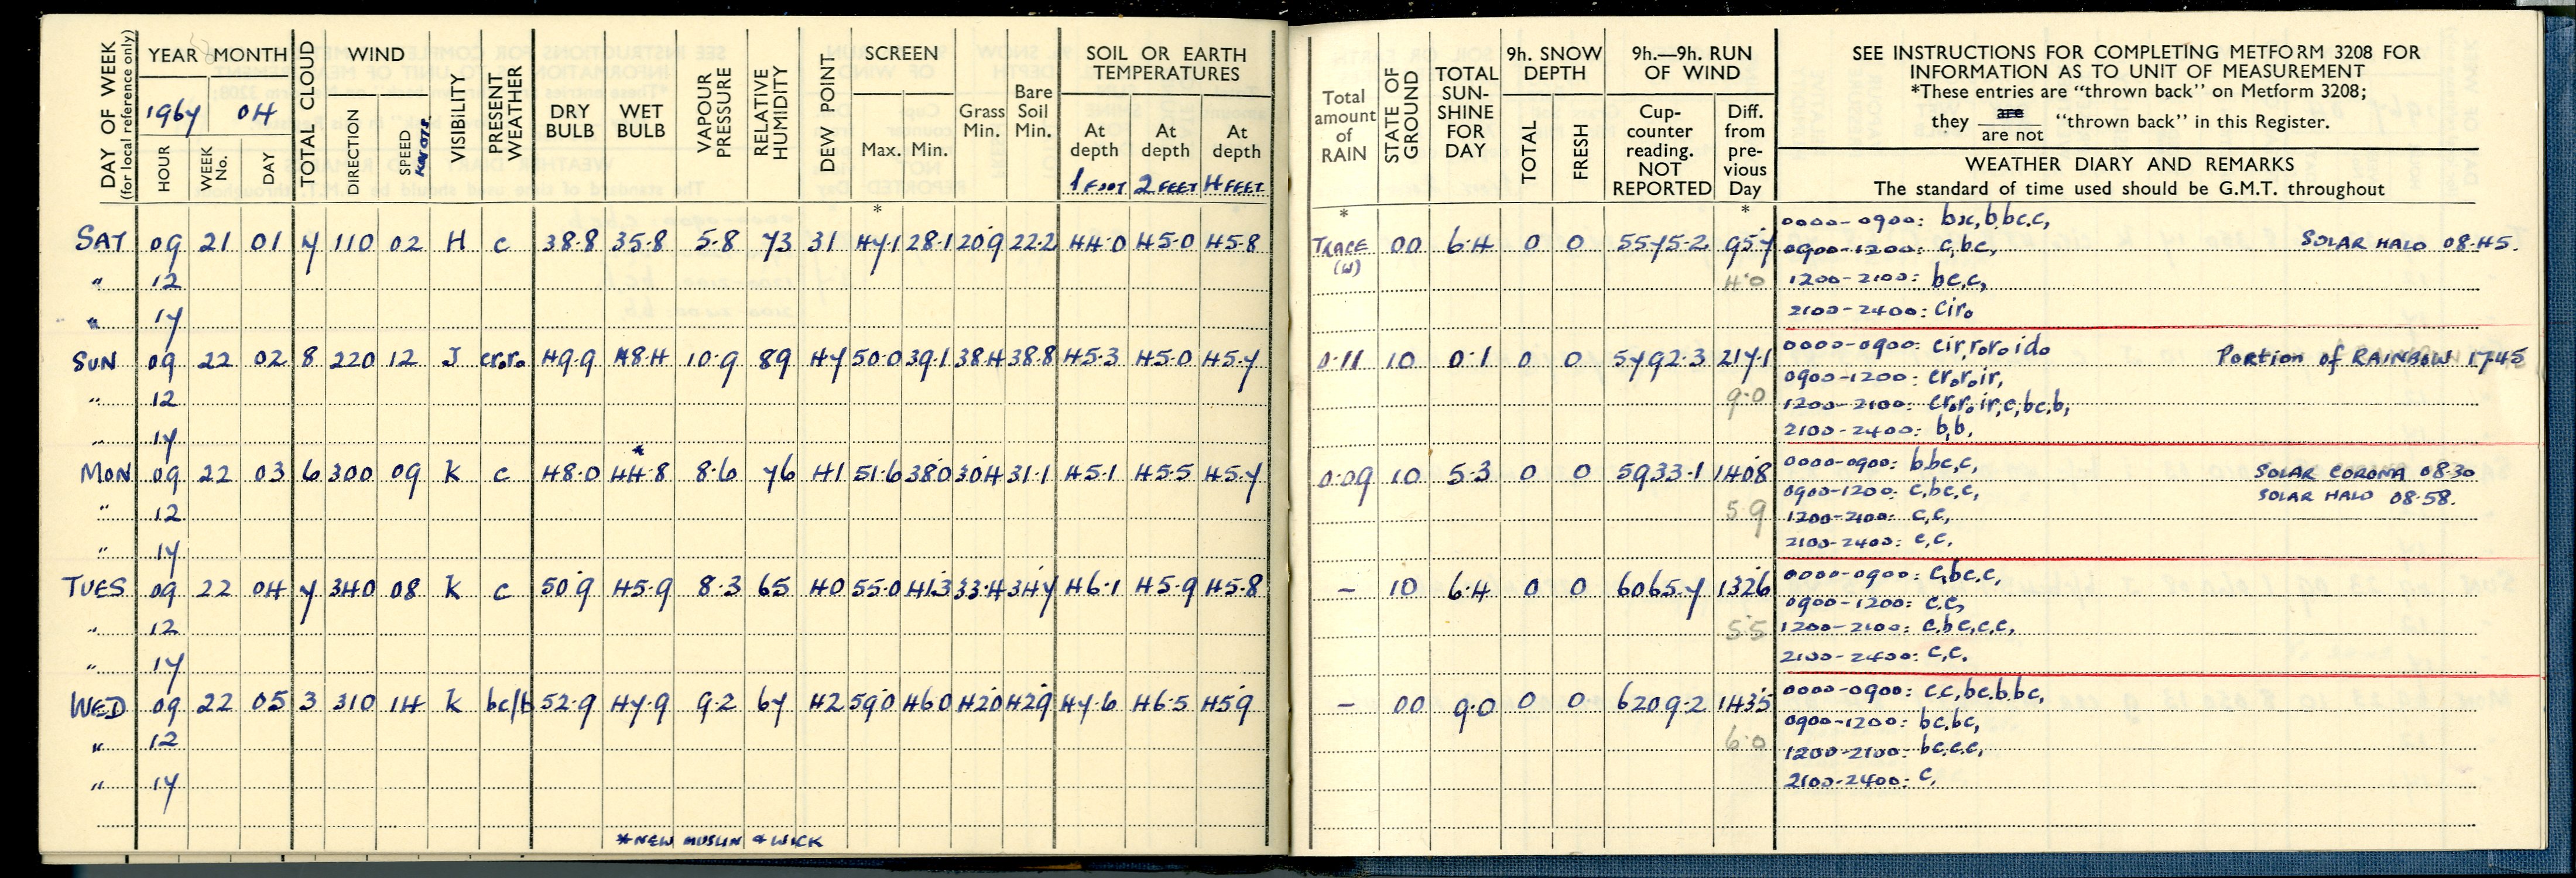 DAY OF WEEK (for local reference only) YEAR MONTH TOTAL CLOUD WIND VISIBILITY PRESENT WEATHER DRY BULB WET BULB VAPOUR PRESSURE RELATIVE HUMIDITY DEW POINT SCREEN Grass Min. Bare Soil Min. SOIL OR EARTH TEMPERATURES
1967 04
HOUR WEEK No. DAY DIRECTION SPEED KNOTS Max. Min. At depth At depth At depth
1 FOOT 2 FEET 4 FEET
*
SAT 09 21 01 7 110 02 H c 38.8 35.8 5.8 73 31 47.1 28.1 20.9 22.2 44.0 45.0 45.8
" 12
" 17
SUN 09 22 02 8 220 12 J cr₀r₀ 49.9 48.4 10.9 89 47 50.0 39.1 38.4 38.8 45.3 45.0 45.7
" 12
" 17
*
MON 09 22 03 6 300 09 K c 48.0 44.8 8.6 76 41 51.6 38.0 30.4 31.1 45.1 45.5 45.7
" 12
" 17
TUES 09 22 04 7 340 08 K c 50.9 45.9 8.3 65 40 55.0 41.3 33.4 34.7 46.1 45.9 45.8
" 12
" 17
WED 09 22 05 3 310 14 K bc/b 52.9 47.9 9.2 67 42 59.0 46.0 42.0 42.9 47.6 46.5 45.9
" 12
" 17
*NEW MUSLIN & WICK
Total amount of RAIN STATE OF GROUND TOTAL SUN-SHINE FOR DAY 9h. SNOW DEPTH 9h.—9h. RUN OF WIND
TOTAL FRESH Cup-counter reading. NOT REPORTED Diff. from pre-vious Day
SEE INSTRUCTIONS FOR COMPLETING METFORM 3208 FOR
INFORMATION AS TO UNIT OF MEASUREMENT
*These entries are "thrown back" on Metform 3208;
they are / are not "thrown back" in this Register.
WEATHER DIARY AND REMARKS
The standard of time used should be G.M.T. throughout
* *
TRACE (W) 00 6.4 0 0 5575.2 95.7
4.0
0000-0900: bx,b,bc,c,
0900-1200: c,bc, SOLAR HALO 08.45.
1200-2100: bc,c,
2100-2400: cir₀
0.11 10 0.1 0 0 5792.3 217.1
9.0
0000-0900: cir,r₀r₀id₀ PORTION OF RAINBOW 17.45
0900-1200: cr₀r₀ir,
1200-2100: cr₀r₀ir,c,bc,b,
2100-2400: b,b,
0.09 10 5.3 0 0 5933.1 140.8
5.9
0000-0900: b,bc,c, SOLAR CORONA 08.30
0900-1200: c,bc,c, SOLAR HALO 08.58.
1200-2100: c,c,
2100-2400: c,c,
– 10 6.4 0 0 6065.7 132.6
5.5
0000-0900: c,bc,c,
0900-1200: c,c,
1200-2100: c,bc,c,c,
2100-2400: c,c,
– 00 9.0 0 0 6209.2 143.5
6.0
0000-0900: c,c,bc,b,bc,
0900-1200: bc,bc,
1200-2100: bc,c,c,
2100-2400: c,